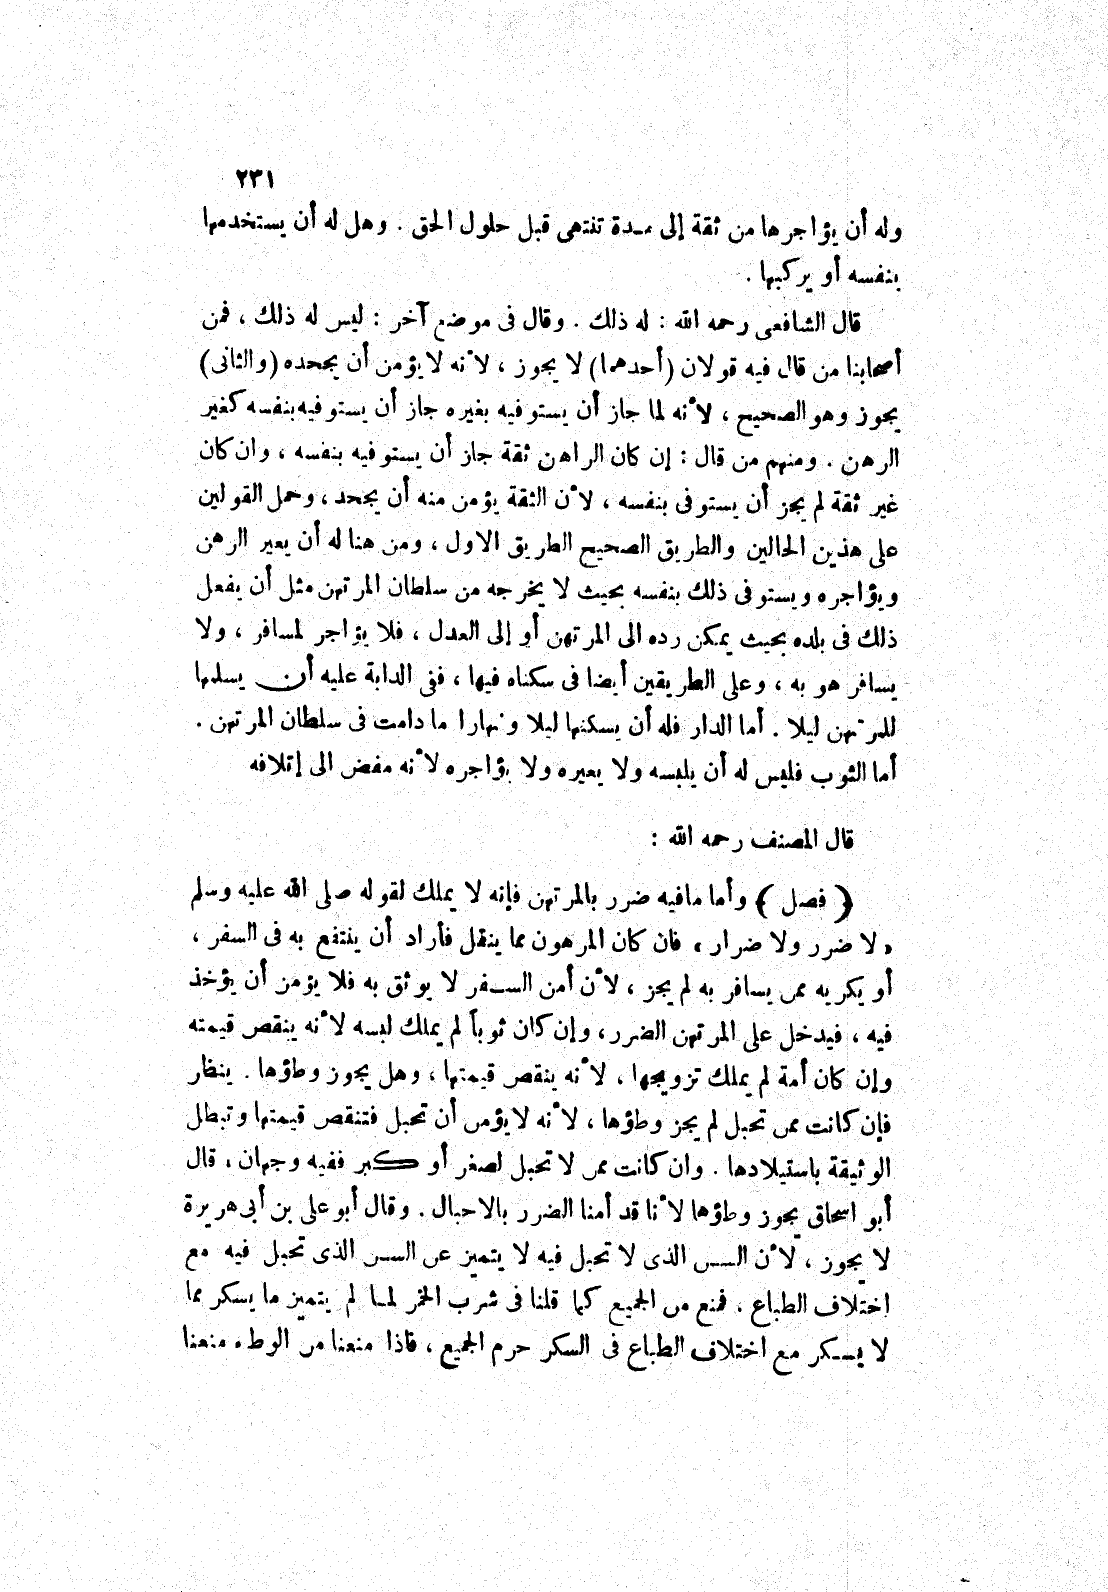 ٢٣١
وله أن يؤاجرها من ثقة إلى مـدة تنتهى قبل حلول الحق . وهل له أن يستخدمها
بنفسه أو يركبها .
قال الشافعى رحمه الله : له ذلك . وقال فى موضع آخر : ليس له ذلك ، فمن
أصحابنا من قال فيه قولان (أحدهما) لا يجوز ، لأنه لا يؤمن أن يجحده (والثانى)
يجوز وهو الصحيح ، لأنه لما جاز أن يستوفيه بغيره جاز أن يستوفيه بنفسه كغير
الرهن . ومنهم من قال : إن كان الراهن ثقة جاز أن يستوفيه بنفسه ، وان كان
غير ثقة لم يجز أن يستوفى بنفسه ، لأن الثقة يؤمن منه أن يجحد ، وحمل القولين
على هذين الحالين والطريق الصحيح الطريق الاول ، ومن هنا له أن يعير الرهن
ويؤاجره ويستوفى ذلك بنفسه بحيث لا يخرجه من سلطان المرتهن مثل أن يفعل
ذلك فى بلده بحيث يمكن رده الى المرتهن أو إلى العدل ، فلا يؤاجر لمسافر ، ولا
يسافر هو به ، وعلى الطريقين أيضا فى سكناه فيها ، ففى الدابة عليه أن يسلمها
للمرتهن ليلا . أما الدار فله أن يسكنها ليلا ونهارا ما دامت فى سلطان المرتهن .
أما الثوب فليس له أن يلبسه ولا يعيره ولا يؤاجره لأنه مفض الى إتلافه
قال المصنف رحمه الله :
﴿ فصل ﴾ وأما مافيه ضرر بالمرتهن فإنه لا يملك لقوله صلى الله عليه وسلم
« لا ضرر ولا ضرار » فان كان المرهون مما ينقل فأراد أن ينتفع به فى السفر ،
أو يكريه ممن يسافر به لم يجز ، لأن أمن السـفر لا يوثق به فلا يؤمن أن يؤخذ
فيه ، فيدخل على المرتهن الضرر ، وإن كان ثوباً لم يملك لبسه لأنه ينقص قيمته
وإن كان أمة لم يملك تزويجها ، لأنه ينقص قيمتها ، وهل يجوز وطؤها . ينظر
فإن كانت ممن تحبل لم يجز وطؤها ، لأنه لايؤمن أن تحبل فتنقص قيمتها وتبطل
الوثيقة باستيلادها . وان كانت ممن لا تحبل لصغر أو كبر ففيه وجهان ، قال
أبو اسحاق يجوز وطؤها لأنا قد أمنا الضرر بالاحبال . وقال أبو على بن أبى هريرة
لا يجوز ، لأن السـن الذى لا تحبل فيه لا يتميز عن السـن الذى تحبل فيه مع
اختلاف الطباع ، فمنع من الجميع كما قلنا فى شرب الخمر لمـا لم يتميز ما يسكر مما
لا يسـكر مع اختلاف الطباع فى السكر حرم الجميع ، فاذا منعنا من الوطء منعنا